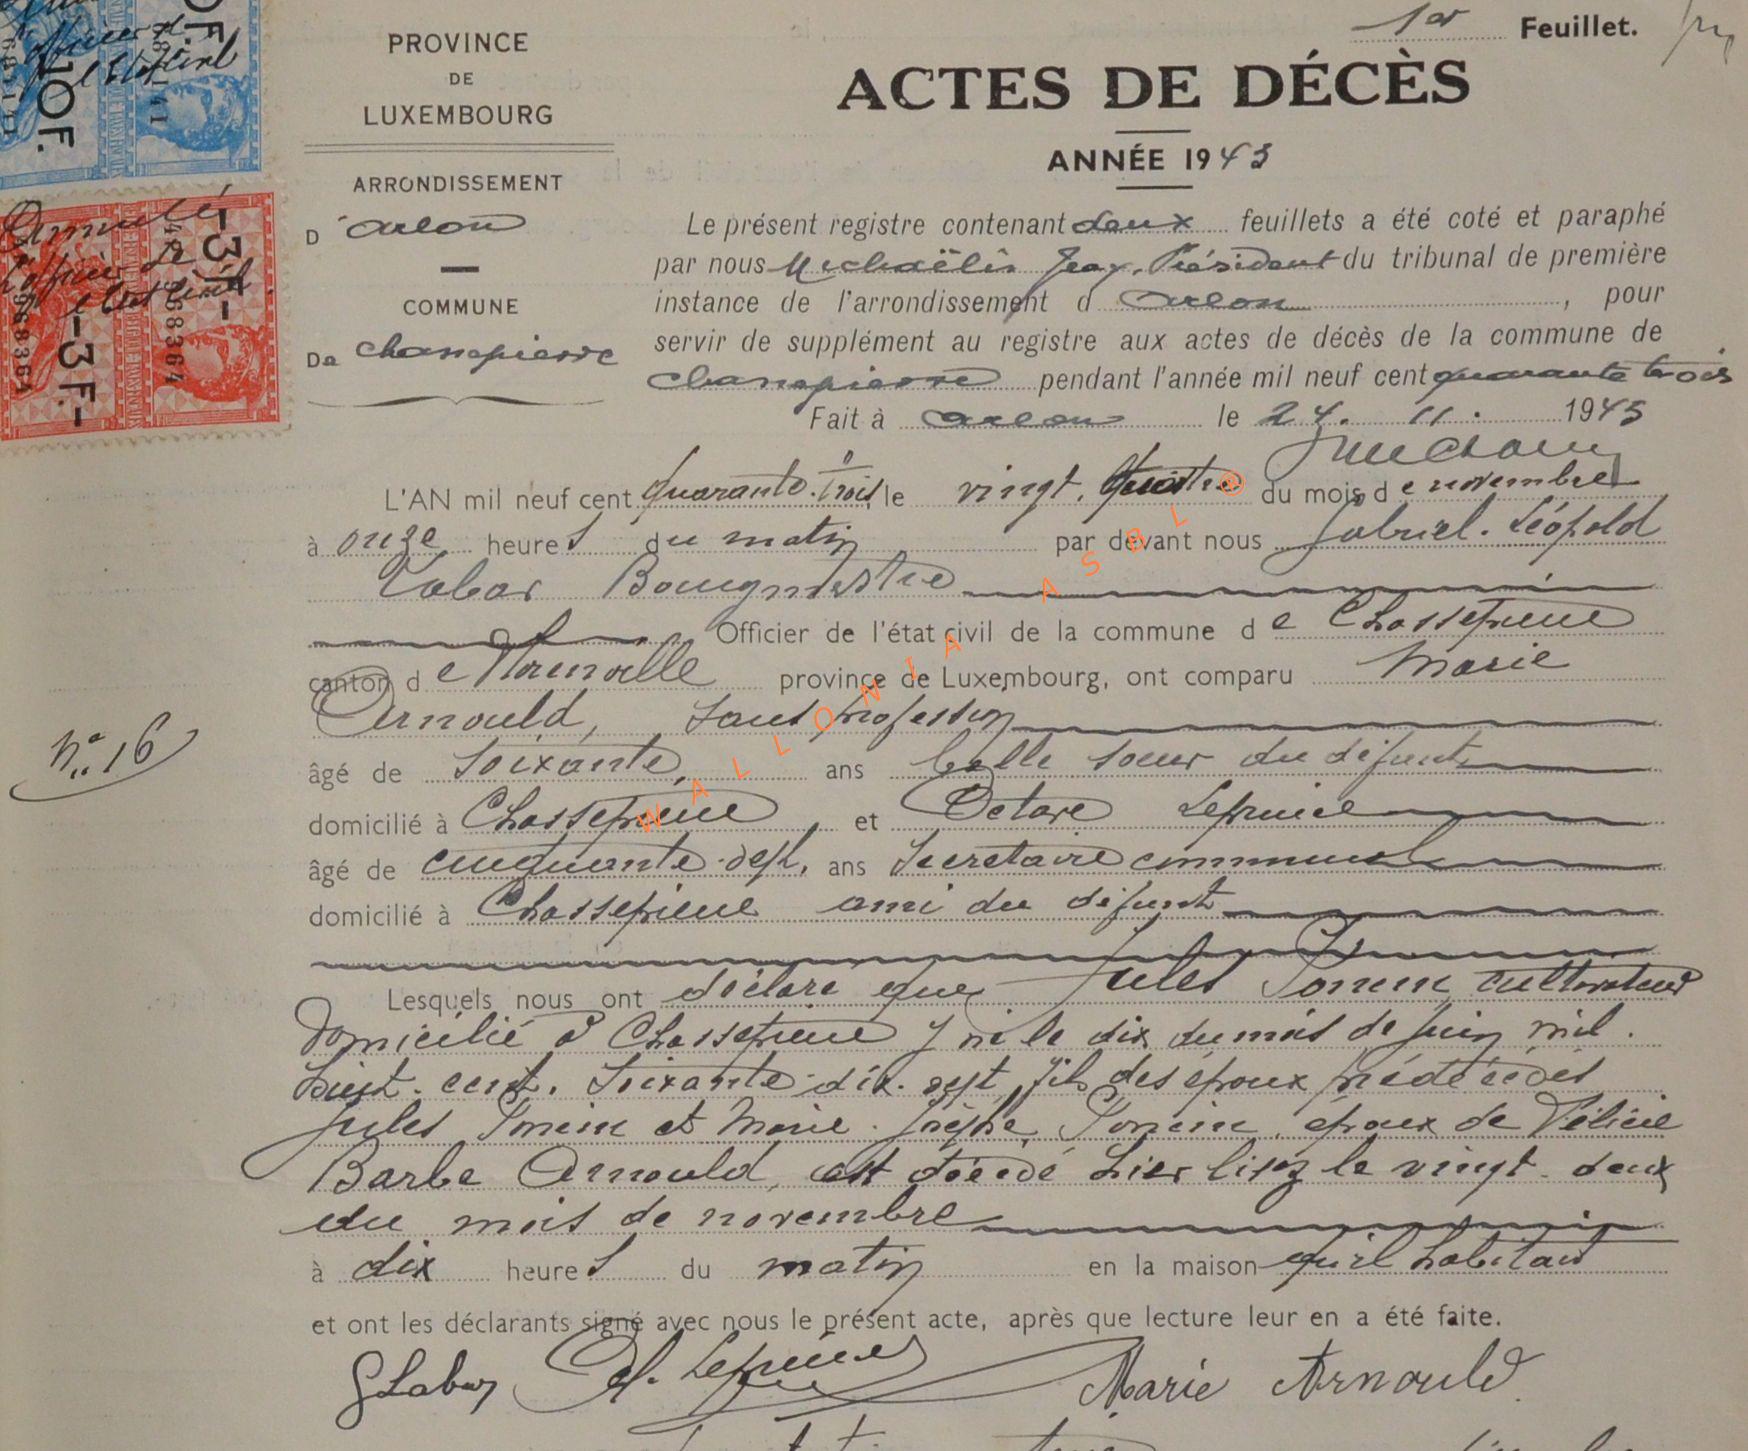 1er Feuillet.
PROVINCE
DE
LUXEMBOURG
ACTES DE DÉCÈS
ANNÉE 1943
ARRONDISSEMENT
D'Arlon
COMMUNE
De Chassepierre
Le présent registre contenant deux feuillets a été coté et paraphé
par nous Michaëlis Jean, Président du tribunal de première
instance de l'arrondissement d Arlon, pour
servir de supplément au registre aux actes de décès de la commune de
Chassepierre pendant l'année mil neuf cent quarante trois
Fait à Arlon le 24. 11. 1943
10F.
681141
-3F.-
-3F.-
468364
Annulé
L'officier de
l'Etat civil
L'AN mil neuf cent quarante-trois, le vingt-quatre du mois de novembre
à onze heures du matin par devant nous Gabriel-Léopold
Labar Bourgmestre
Officier de l'état civil de la commune de Chassepierre
canton de Florenville province de Luxembourg, ont comparu Marie
Arnould, sans profession
âgé de soixante, ans belle sœur du défunt
domicilié à Chassepierre, et Octave Lefruise
âgé de cinquante-sept, ans secrétaire communal
domicilié à Chassepierre ami du défunt
Lesquels nous ont déclaré que Jules Ponin, cultivateur
domicilié à Chassepierre y né le dix du mois de juin mil
huit-cent-soixante-dix-sept, fils des époux prédécédés
Jules Ponin et Marie-Josèphe Ponin, époux de Félicie
Barbe Arnould, est décédé hier lisez le vingt-deux
du mois de novembre
à dix heures du matin en la maison qu'il habitait
et ont les déclarants signé avec nous le présent acte, après que lecture leur en a été faite.
GLabar Marie Arnould
No. 16
WALLONIA ASBL ®